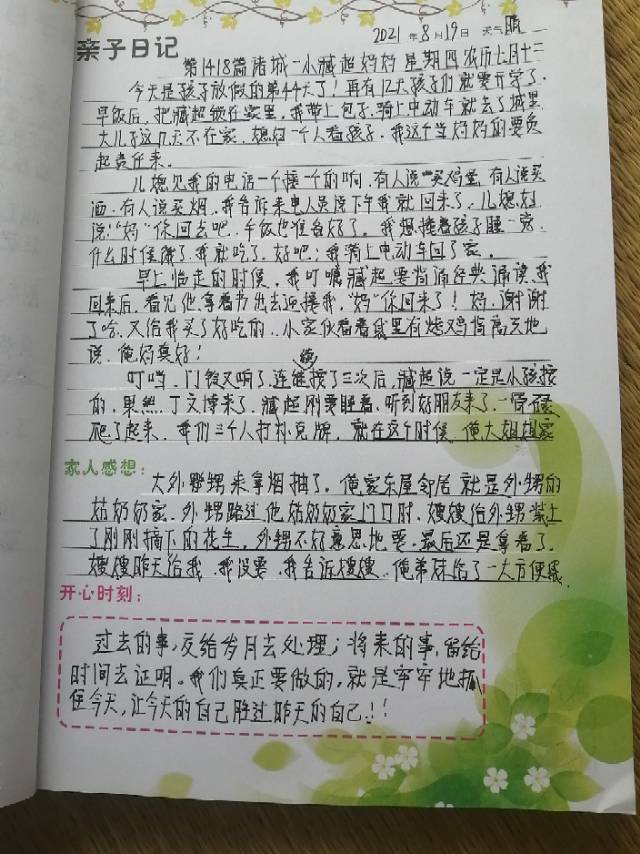 亲子日记
2021年8月19日 天气晴
第1418篇诸城一小臧超妈妈 星期四农历七月十二
今天是孩子放假的第44天了！再有12天孩子们就要开学了.
早饭后,把臧超锁在家里,我带上包子.骑上电动车就去了城里
大儿子这几天不在家.媳妇一个人看孩子.我这个当妈妈的要负
起责任来。
儿媳见我的电话一个接一个的响.有人说买鸡蛋,有人说买
酒.有人说买烟.我告诉来电人员说下午我就回来了.儿媳妇
说:"妈"你回去吧.午饭也准备好了.我想搂着孩子睡一宿.
什么时候饿了.我就吃了.好吧:我骑上电动车回了家。
早上临走的时候,我叮嘱臧超要背诵经典诵读.我
回来后,看见他拿着书出去迎接我,"妈"你回来了！妈,谢谢
了哈.又给我买了好吃的.小家伙看着袋里有烧鸡指高又地
说.俺妈真好！
叮当,门铃又响了.连续按了三次后,臧超说一定是小孩按
的,果然.丁文博来了.臧超刚要睡着.听到好朋友来了.一骨碌
爬了起来.我们三个人打扑克牌,就在这个时候,俺大姐姐家
家人感想:
大外甥来拿烟抽了.俺家东屋邻居就是外甥的
姑奶奶家.外甥路过他姑奶奶家门口时.嫂嫂给外甥装上
了刚刚摘下的花生.外甥不好意思地要.最后还是拿着了.
嫂嫂昨天给我.我没要.我告诉嫂嫂.俺弟妹给了一大方便袋.
开心时刻:
过去的事,交给岁月去处理;将来的事,留给
时间去证明。我们真正要做的,就是牢牢地抓
住今天,让今天的自己胜过昨天的自己!!